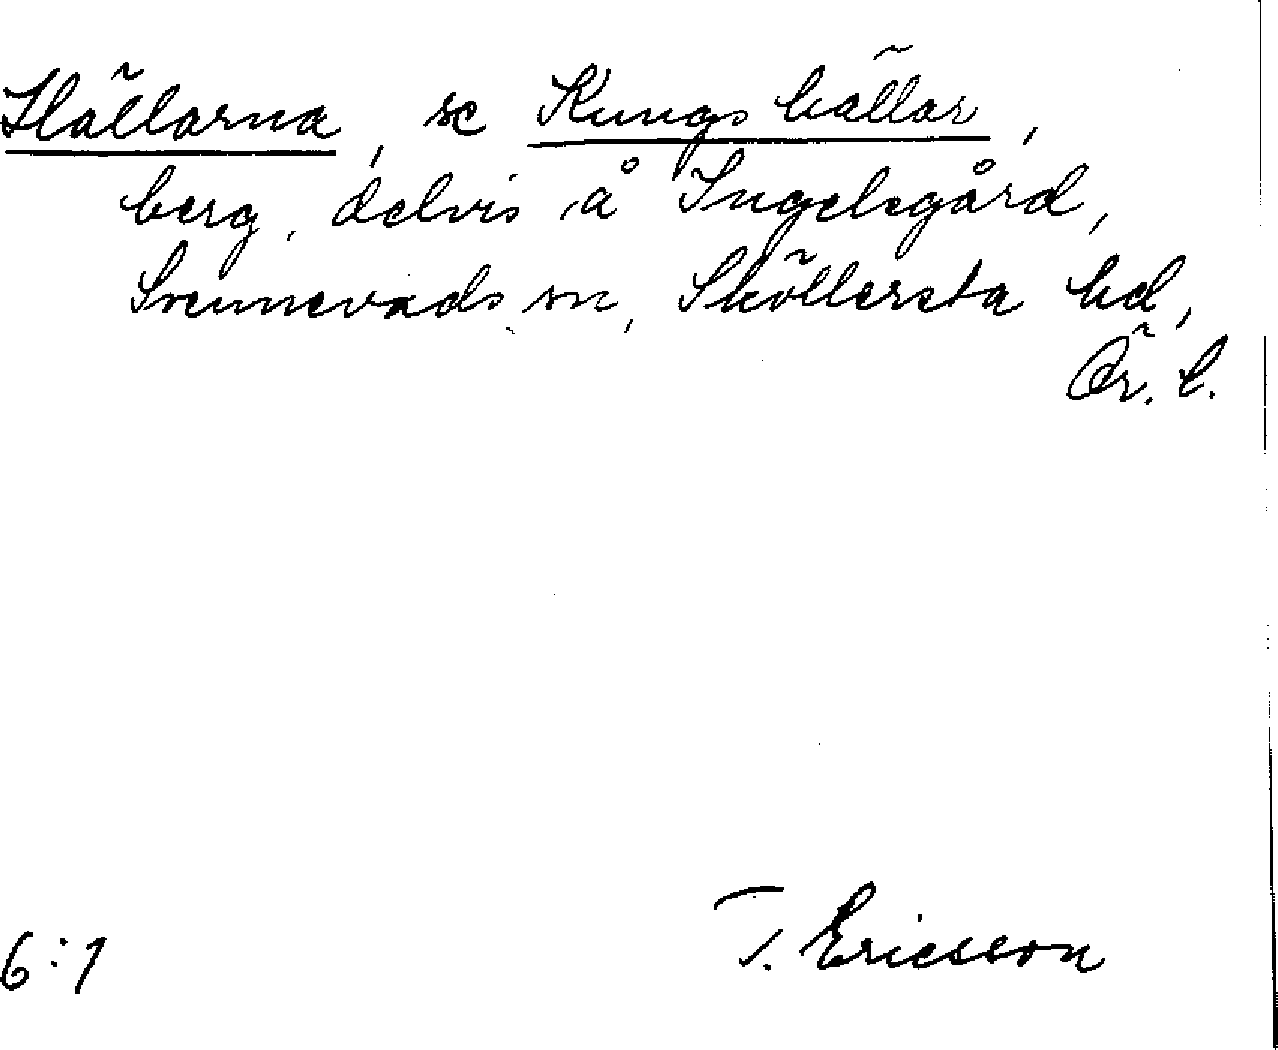 Hällarna, se Kungshällar,
berg, delvis å Ingelsgård,
Svennevads sn, Sköllersta hd,
Ör. l.
T. Ericsson
6:1